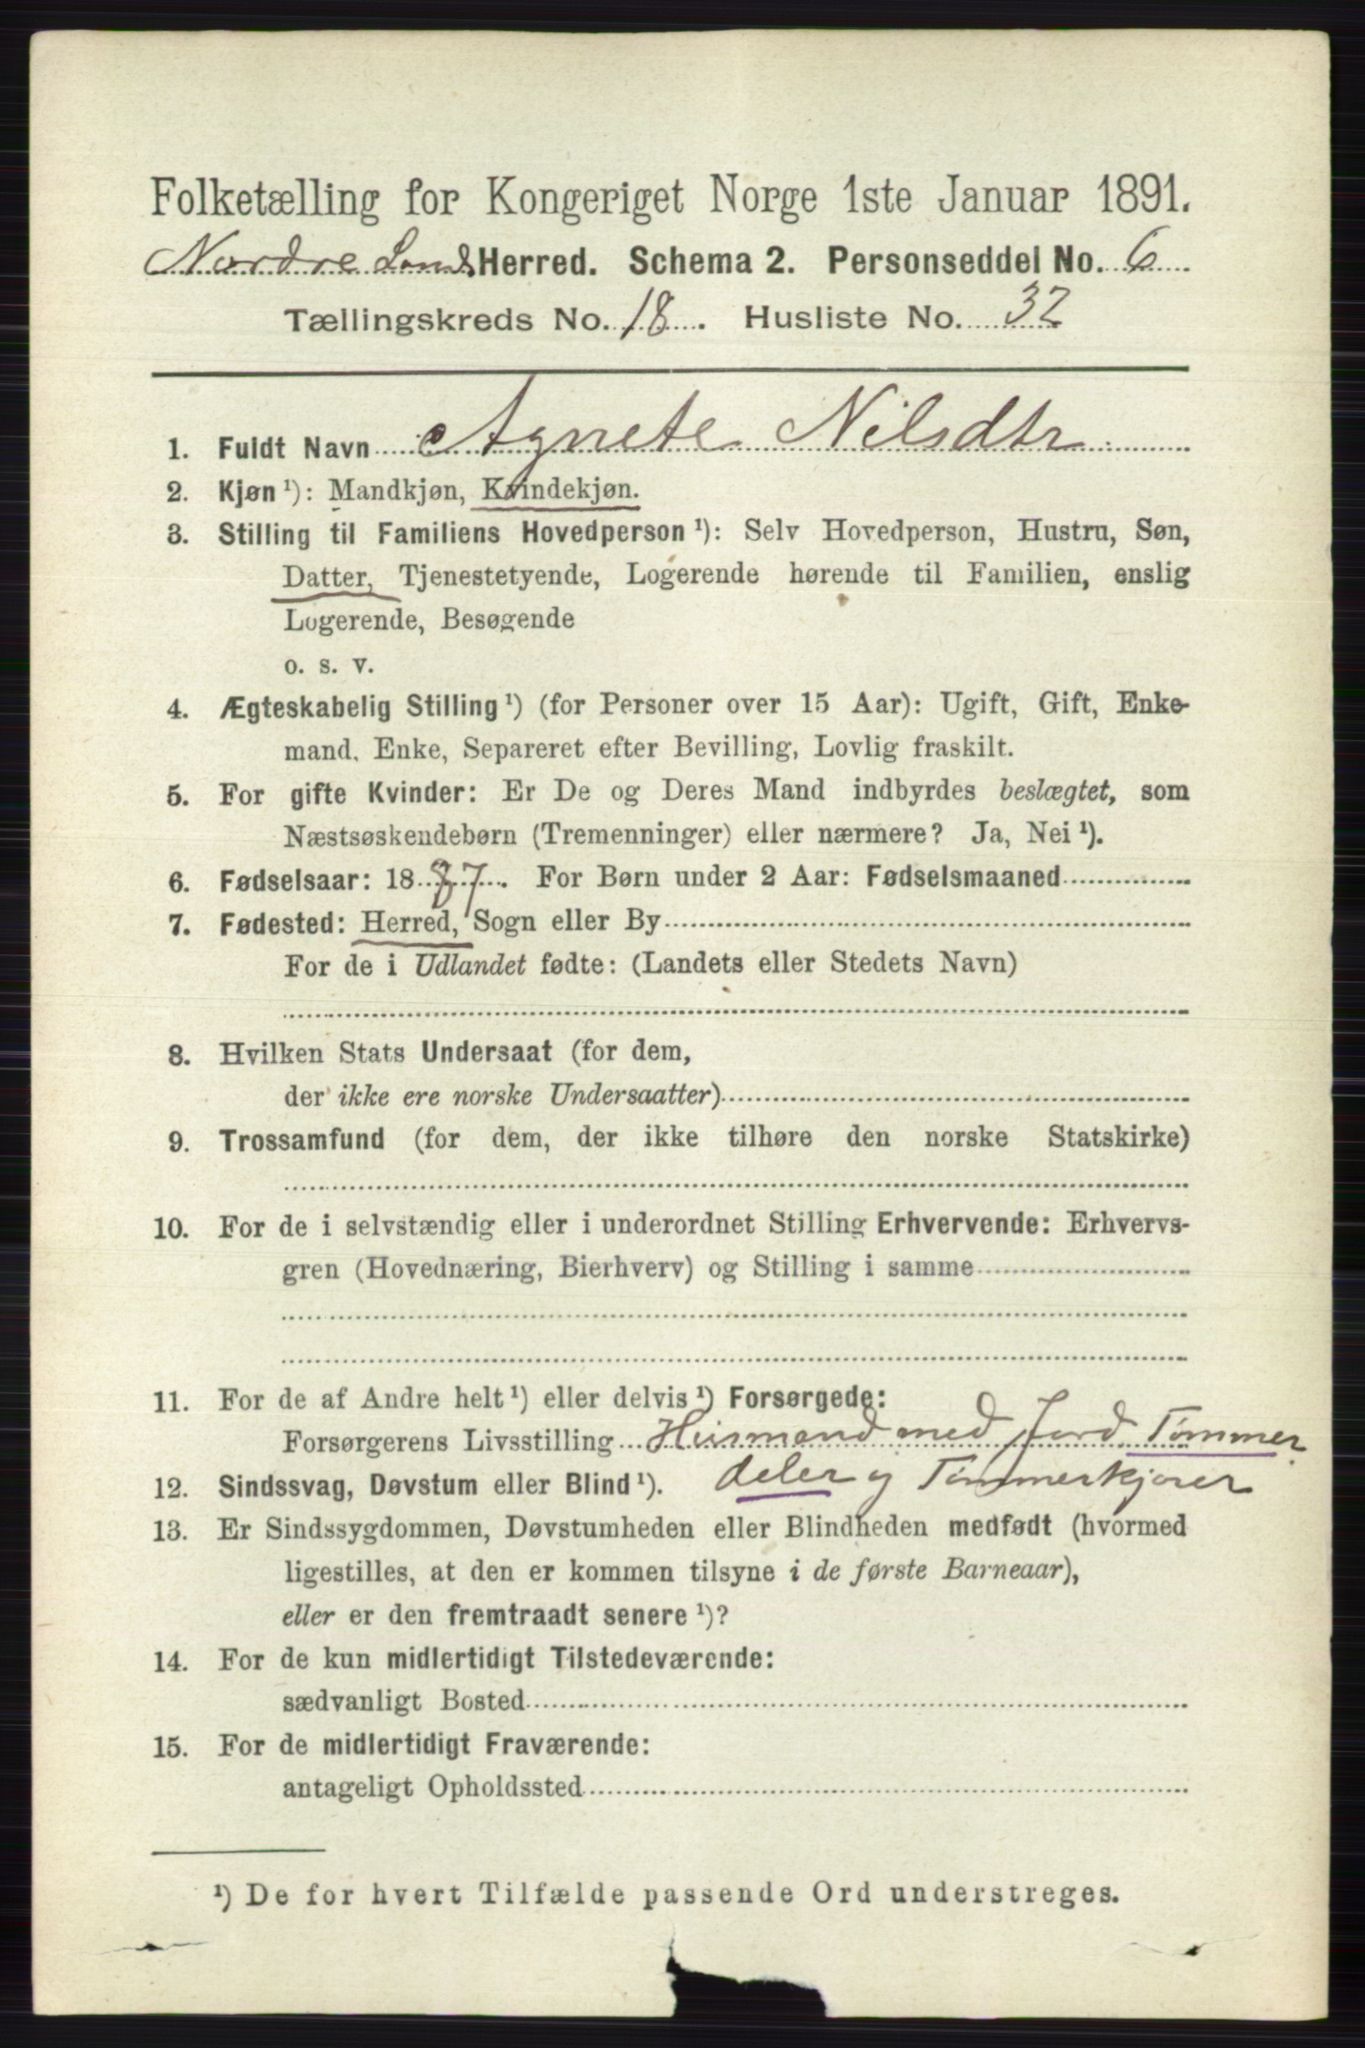 Folketælling for Kongeriget Norge 1ste Januar 1891.
Nordre Land Herred. Schema 2. Personseddel No. 6
Tællingskreds No. 18. Husliste No. 32
1. Fuldt Navn Agnete Nilsdtr
2. Kjøn ¹): Mandkjøn, Kvindekjøn.
3. Stilling til Familiens Hovedperson ¹): Selv Hovedperson, Hustru, Søn,
Datter, Tjenestetyende, Logerende hørende til Familien, enslig
Logerende, Besøgende
o. s. v.
4. Ægteskabelig Stilling ¹) (for Personer over 15 Aar): Ugift, Gift, Enke-
mand, Enke, Separeret efter Bevilling, Lovlig fraskilt.
5. For gifte Kvinder: Er De og Deres Mand indbyrdes beslægtet, som
Næstsøskendebørn (Tremenninger) eller nærmere? Ja, Nei ¹).
6. Fødselsaar: 1887. For Børn under 2 Aar: Fødselsmaaned
7. Fødested: Herred, Sogn eller By
For de i Udlandet fødte: (Landets eller Stedets Navn)
8. Hvilken Stats Undersaat (for dem,
der ikke ere norske Undersaatter)
9. Trossamfund (for dem, der ikke tilhøre den norske Statskirke)
10. For de i selvstændig eller i underordnet Stilling Erhvervende: Erhvervs-
gren (Hovednæring, Bierhverv) og Stilling i samme
11. For de af Andre helt ¹) eller delvis ¹) Forsørgede:
Forsørgerens Livsstilling Husmand med Jord Tømmer
12. Sindssvag, Døvstum eller Blind ¹). deler og Tømmerkjører
13. Er Sindssygdommen, Døvstumheden eller Blindheden medfødt (hvormed
ligestilles, at den er kommen tilsyne i de første Barneaar),
eller er den fremtraadt senere ¹)?
14. For de kun midlertidigt Tilstedeværende:
sædvanligt Bosted
15. For de midlertidigt Fraværende:
antageligt Opholdssted
¹) De for hvert Tilfælde passende Ord understreges.